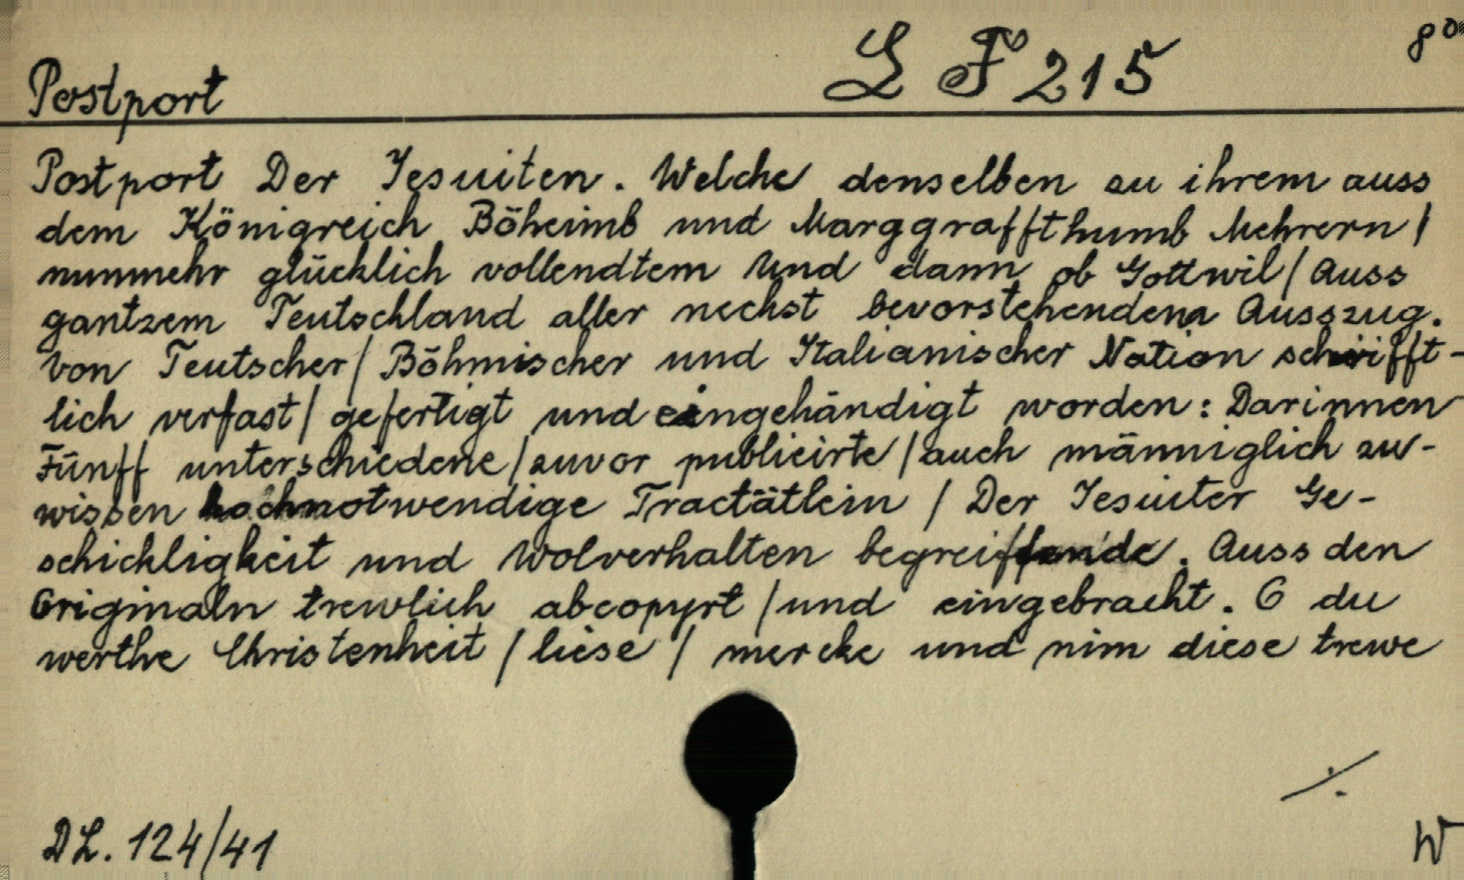 L F 215
8°
Postport
Postport Der Jesuiten. Welche denselben zu ihrem auss
dem Königreich Böheimb und Marggraffthumb Mehrern /
nunmehr glücklich vollendtem Und dann ob Gott wil / Auss
gantzem Teutschland aller nechst bevorstehendenn Ausszug.
Von Teutscher / Böhmischer und Italianischer Nation schrifft-
lich verfast / gefertigt und eingehändigt worden: Darinnen
Fünff unterschiedene / zuvor publicirte / auch männiglich zu-
wissen hochnotwendige Tractätlein / Der Jesuiter Ge-
schickligkeit und Wolverhalten begreiffende. Auss den
Originaln trewlich abcopyrt / und eingebracht. O du
werthe Christenheit / liese / mercke und nim diese trewe
DL. 124/41
W